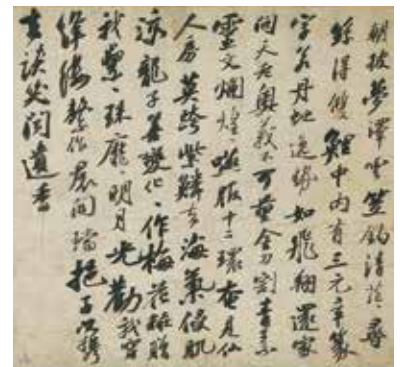 朝披夢澤雲笠釣清茫〻尋
絲得雙鯉中內有三元章篆
字若丹虵逸勢如飛翔還家
問天老奧義不可量金刀割青素
靈文爛煌〻嚥服十二環奄見仙
人房暮跨紫鱗去海氣侵肌
涼龍子善變化〻作梅花妝贈
我纍〻珠靡〻明月光勸我穿
絳縷繫作裙間襠挹子以攜
去談笑聞遺香